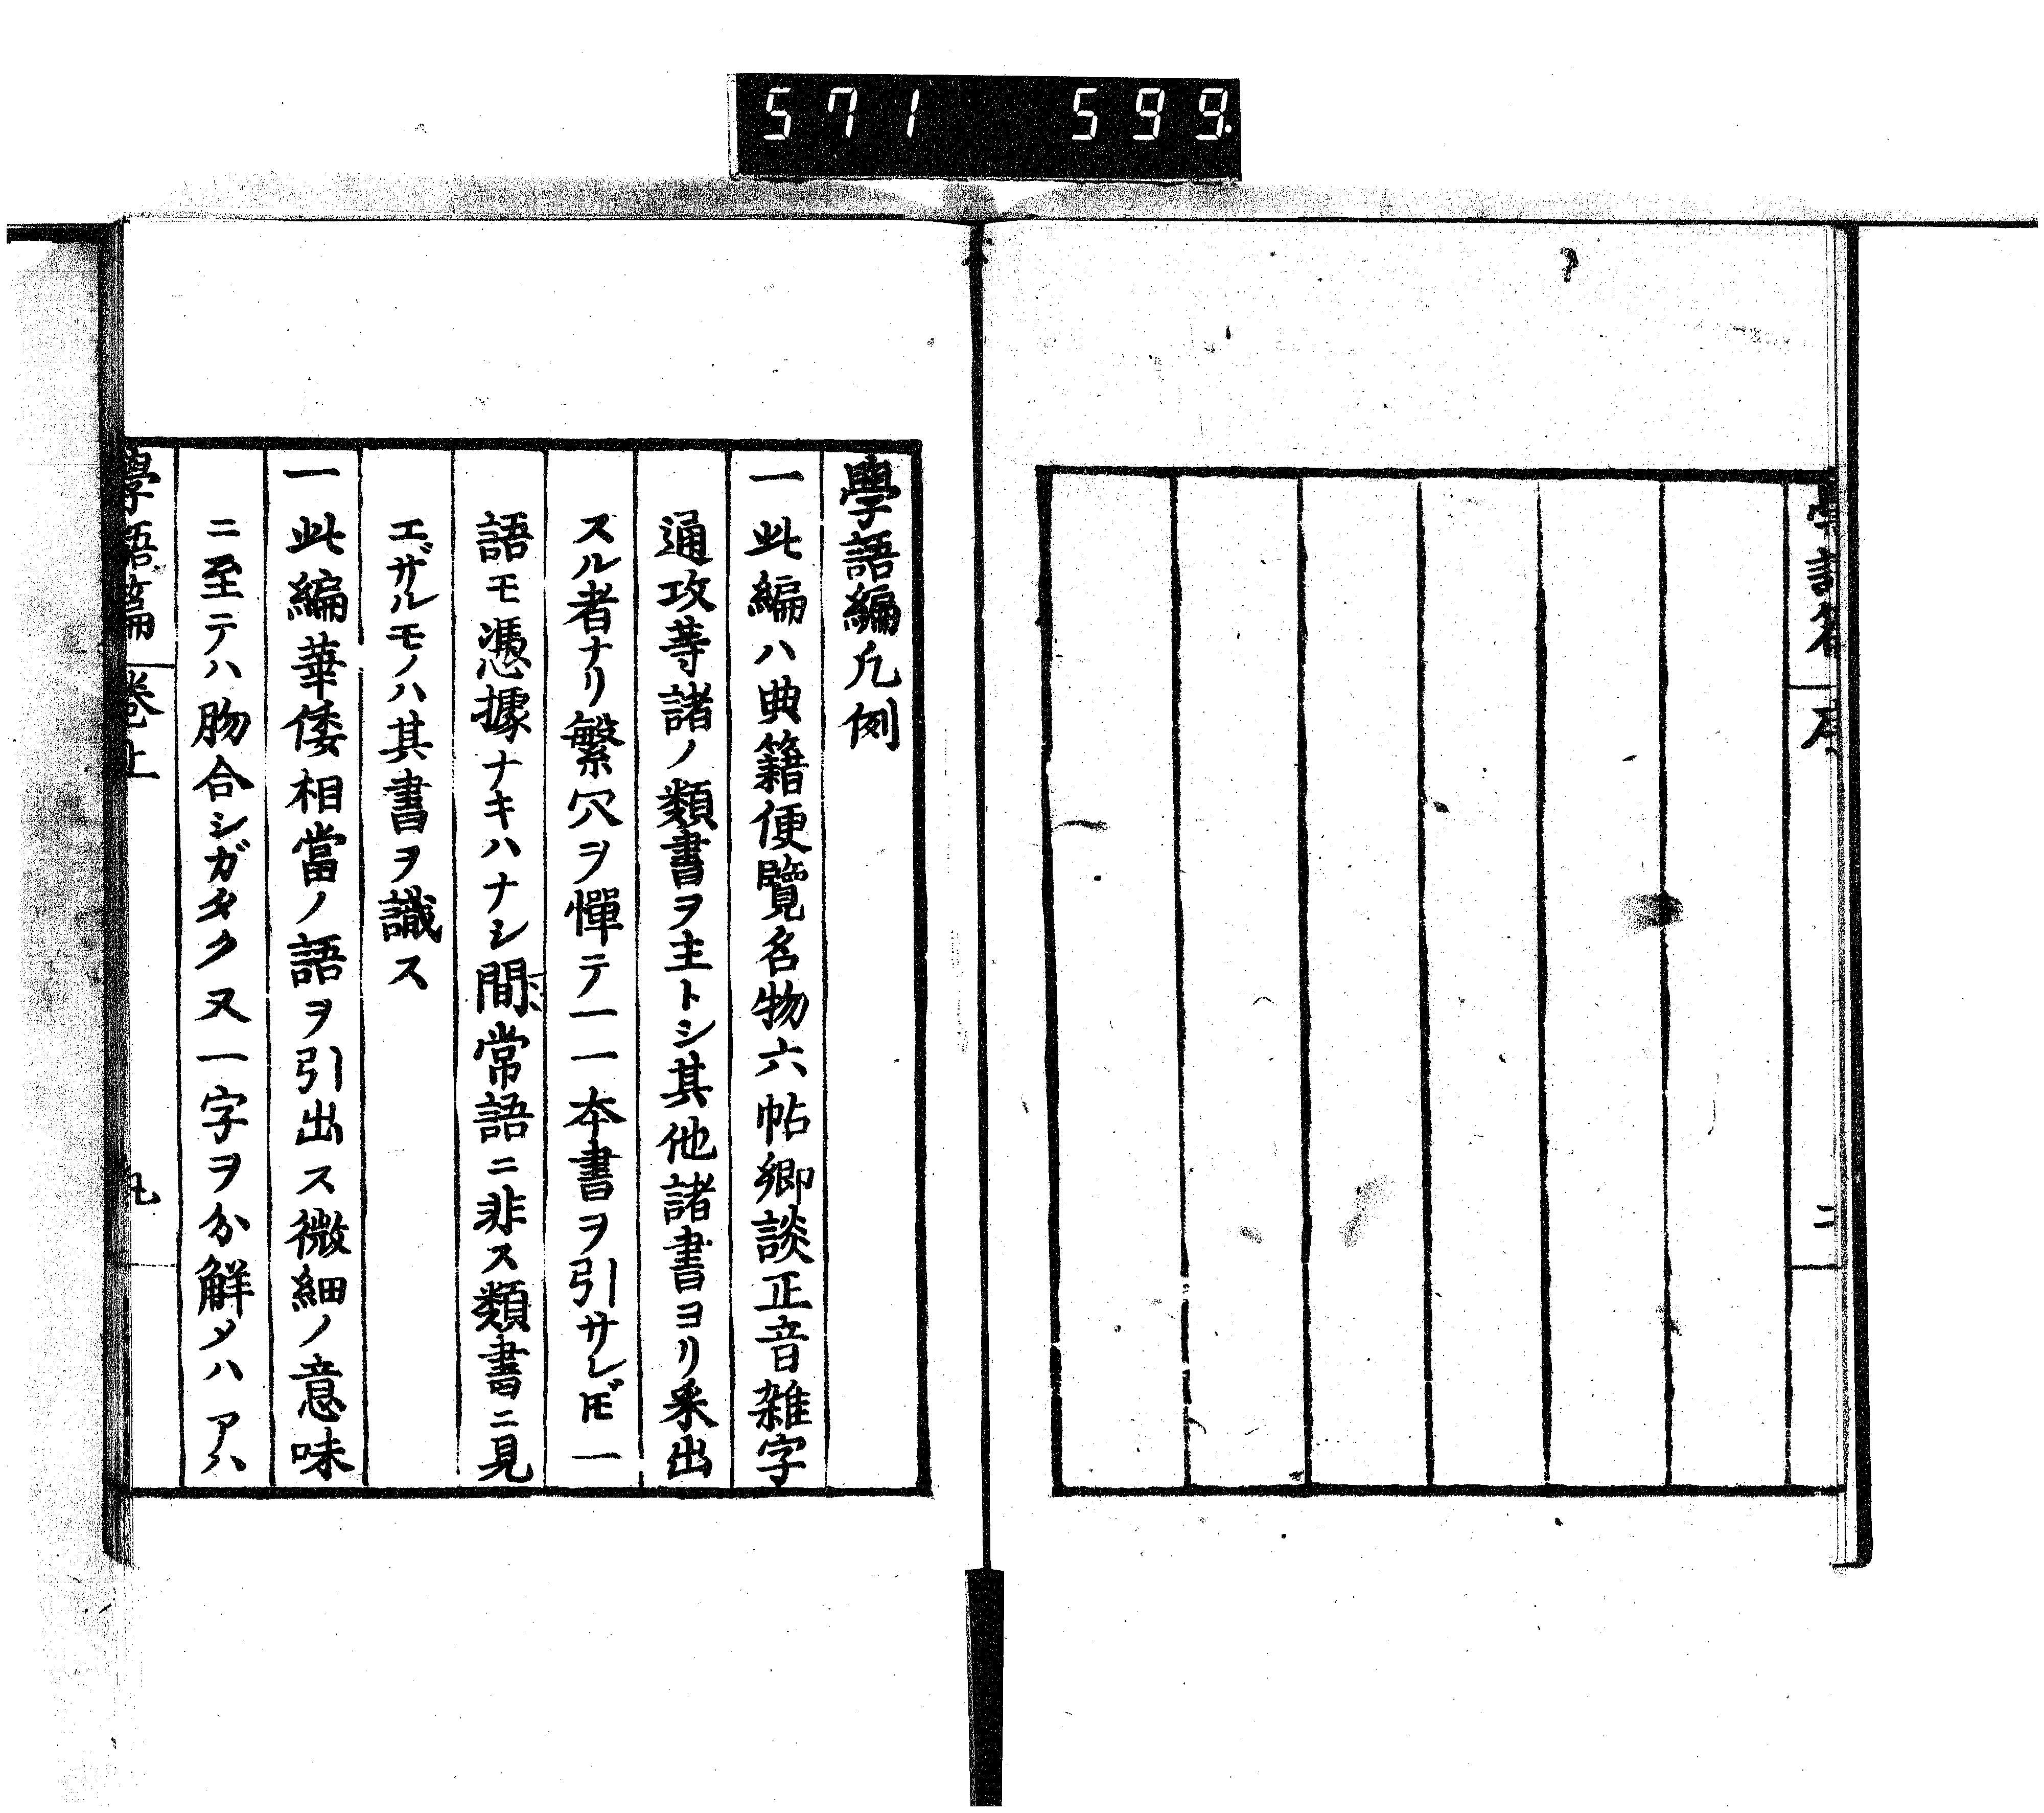 571 599
學語編
序
二
學語編凡例
一此編ハ典籍便覽名物六帖鄉談正音雑字
通攷等諸ノ類書ヲ主トシ其他諸書ヨリ釆出
スル者ナリ繁冗ヲ憚テ一一本書ヲ引サレ𪜈一
語モ憑據ナキハナシ間常語ニ非ス類書ニ見
エザルモノハ其書ヲ識ス
一此編華倭相當ノ語ヲ引出ス微細ノ意味
ニ至テハ脗合シガタク又一字ヲ分解メハアハ
學語編 卷上 凡